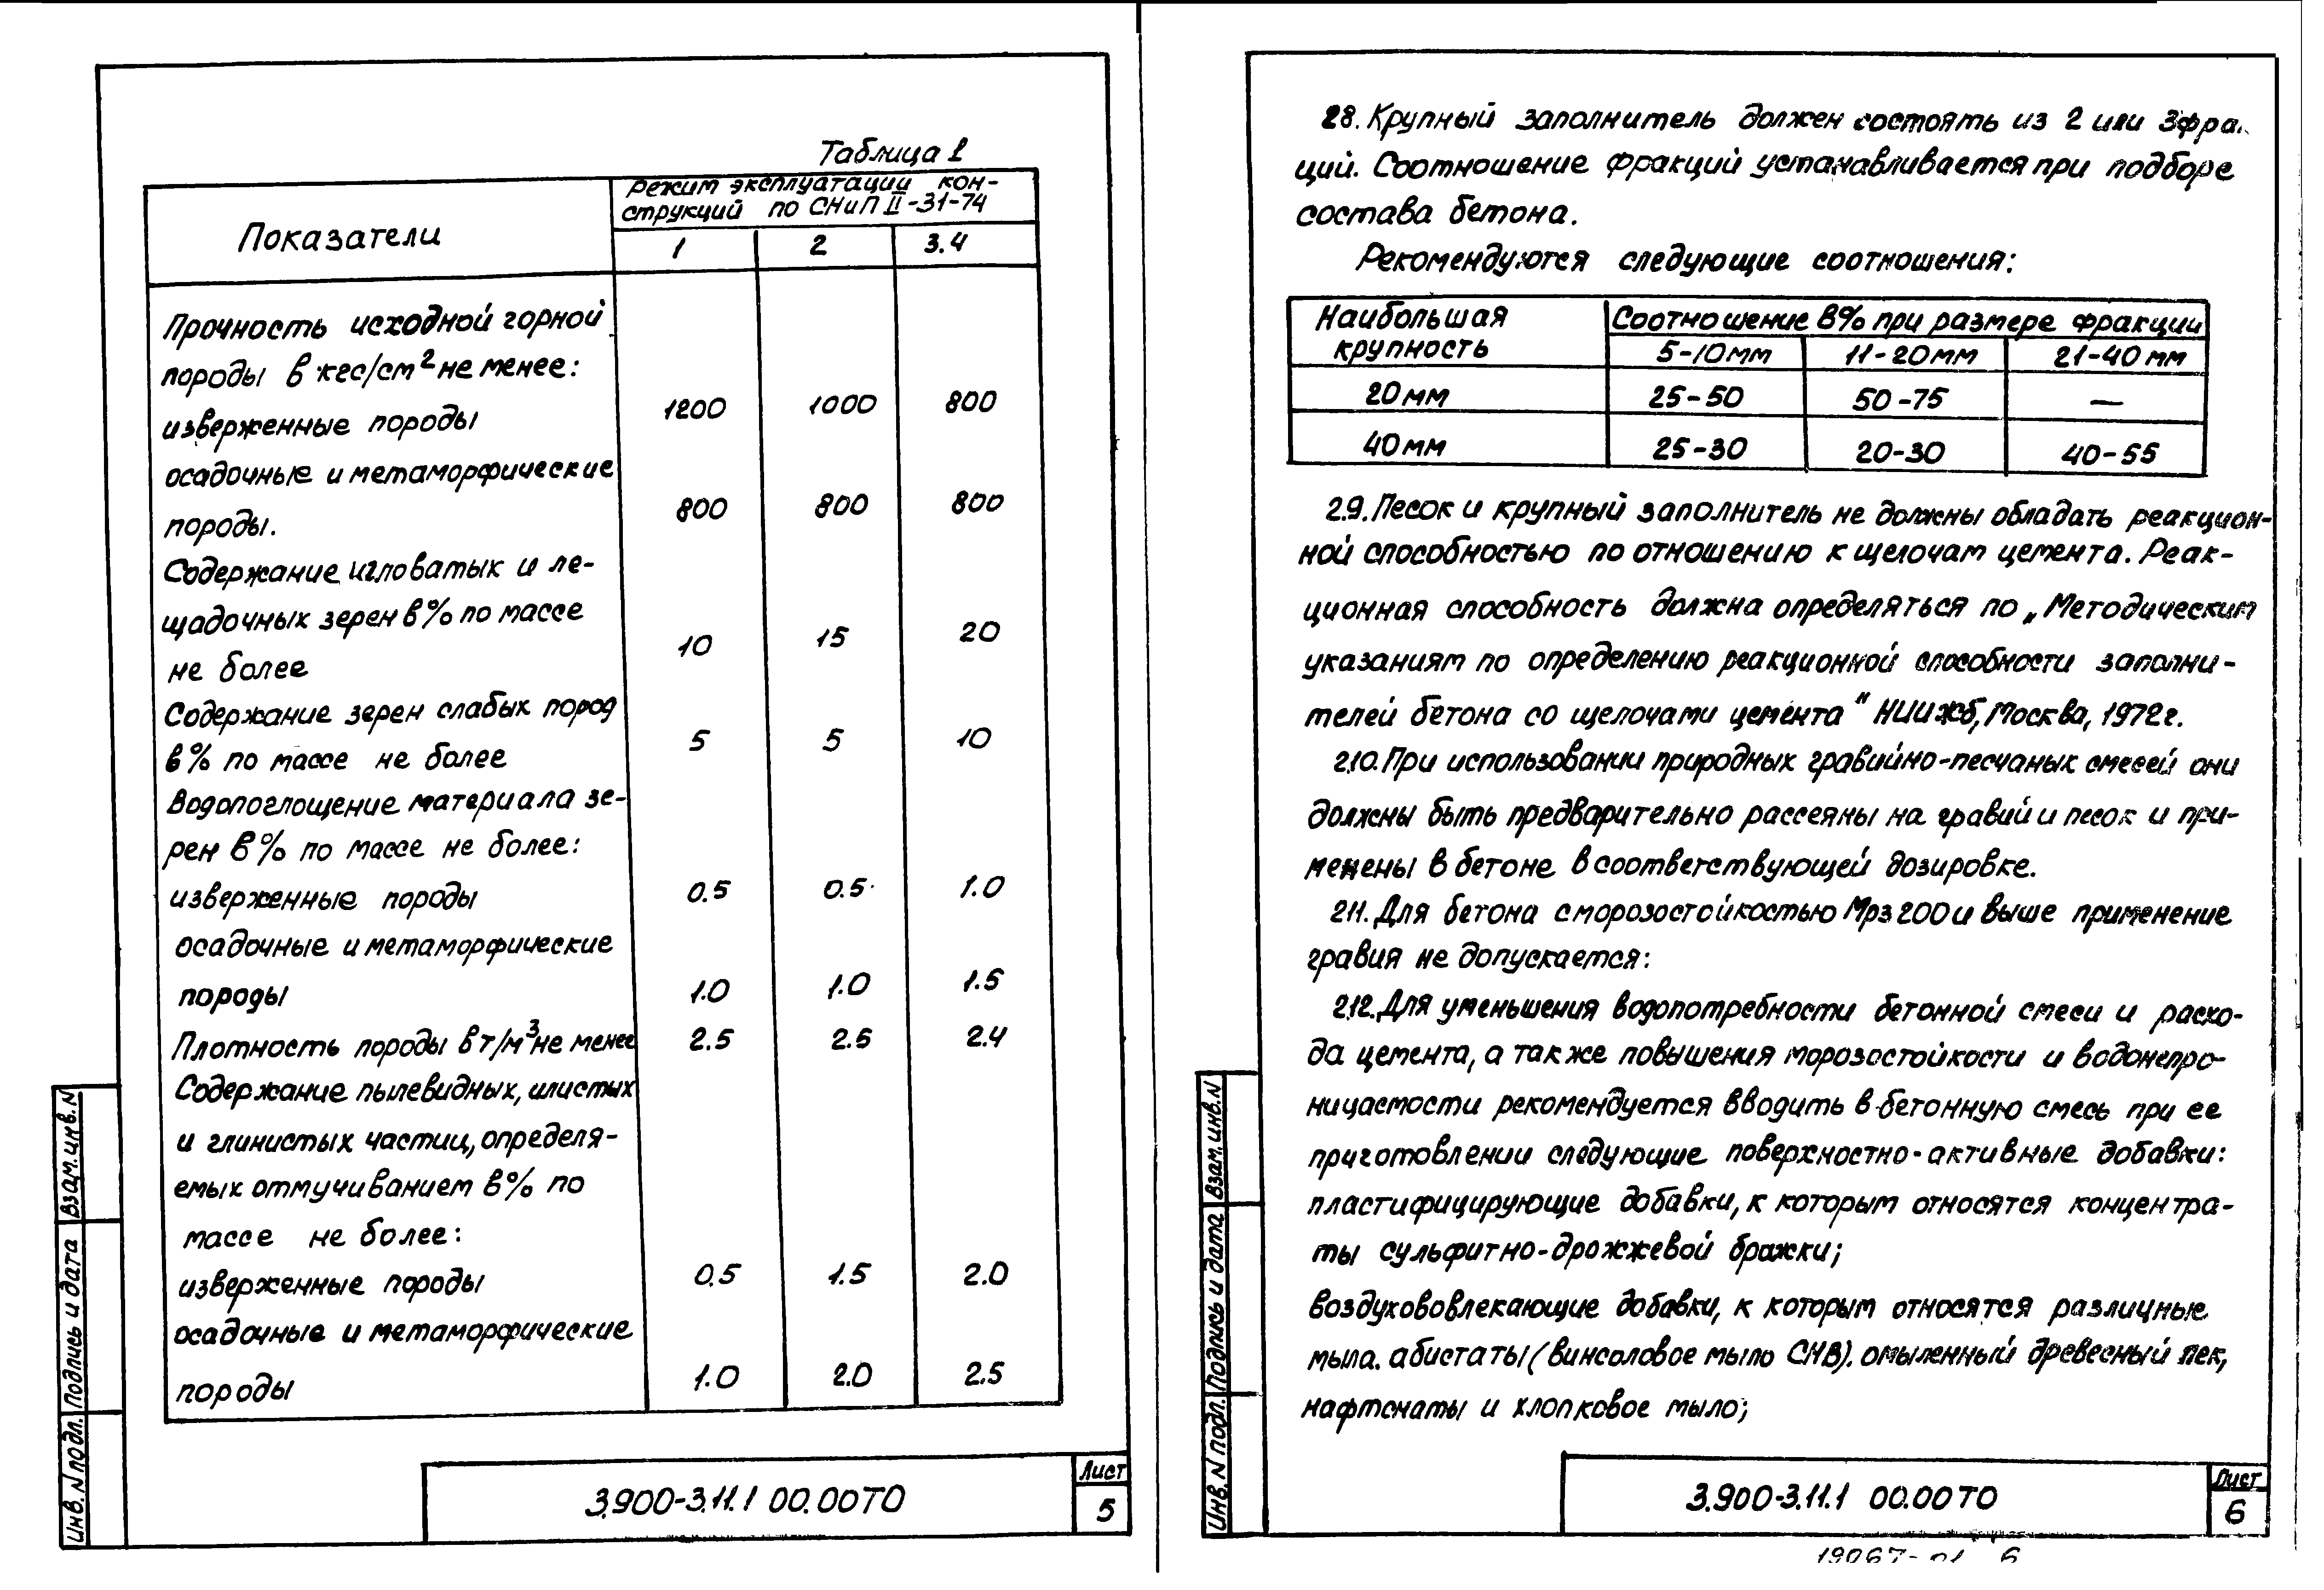 Таблица 1
Показатели
Режим эксплуатации кон-
струкций по СНиП II-31-74
1 2 3.4
Прочность исходной горной
породы в кгс/см2 не менее:
изверженные породы 1200 1000 800
осадочные и метаморфические
породы. 800 800 800
Содержание игловатых и ле-
щадочных зерен в % по массе
не более 10 15 20
Содержание зерен слабых пород
в % по массе не более 5 5 10
Водопоглощение материала зе-
рен в % по массе не более:
изверженные породы 0.5 0.5 1.0
осадочные и метаморфические
породы 1.0 1.0 1.5
Плотность породы в т/м3 не менее 2.5 2.5 2.4
Содержание пылевидных, илистых
и глинистых частиц, определя-
емых отмучиванием в % по
массе не более:
изверженные породы 0.5 1.5 2.0
осадочные и метаморфические
породы 1.0 2.0 2.5
Инв. N подл. Подпись и дата Взам. инв. N
3.900-3.11.1 00.00ТО
Лист
5
28. Крупный заполнитель должен состоять из 2 или 3 фра
ций. Соотношение фракций устанавливается при подборе
состава бетона.
Рекомендуются следующие соотношения:
Наибольшая
крупность
Соотношение в % при размере фракции
5-10мм 11-20мм 21-40мм
20мм 25-50 50-75 —
40мм 25-30 20-30 40-55
2.9. Песок и крупный заполнитель не должны обладать реакцион-
ной способностью по отношению к щелочам цемента. Реак-
ционная способность должна определяться по „Методическим
указаниям по определению реакционной способности заполни-
телей бетона со щелочами цемента" НИИЖБ, Москва, 1972г.
2.10. При использовании природных гравийно-песчаных смесей они
должны быть предварительно рассеяны на гравий и песок и при-
менены в бетоне в соответствующей дозировке.
2.11. Для бетона с морозостойкостью Мрз 200 и выше применение
гравия не допускается:
2.12. Для уменьшения водопотребности бетонной смеси и расхо-
да цемента, а также повышения морозостойкости и водонепро-
ницаемости рекомендуется вводить в бетонную смесь при ее
приготовлении следующие поверхностно-активные добавки:
пластифицирующие добавки, к которым относятся концентра-
ты сульфитно-дрожжевой бражки;
воздухововлекающие добавки, к которым относятся различные
мыла. абистаты (винсоловое мыло СНВ). омыленный древесный пек,
нафтенаты и хлопковое мыло;
Инв. N подл. Подпись и дата Взам. инв. N
3.900-3.11.1 00.00ТО
Лист
6
19067-01 6